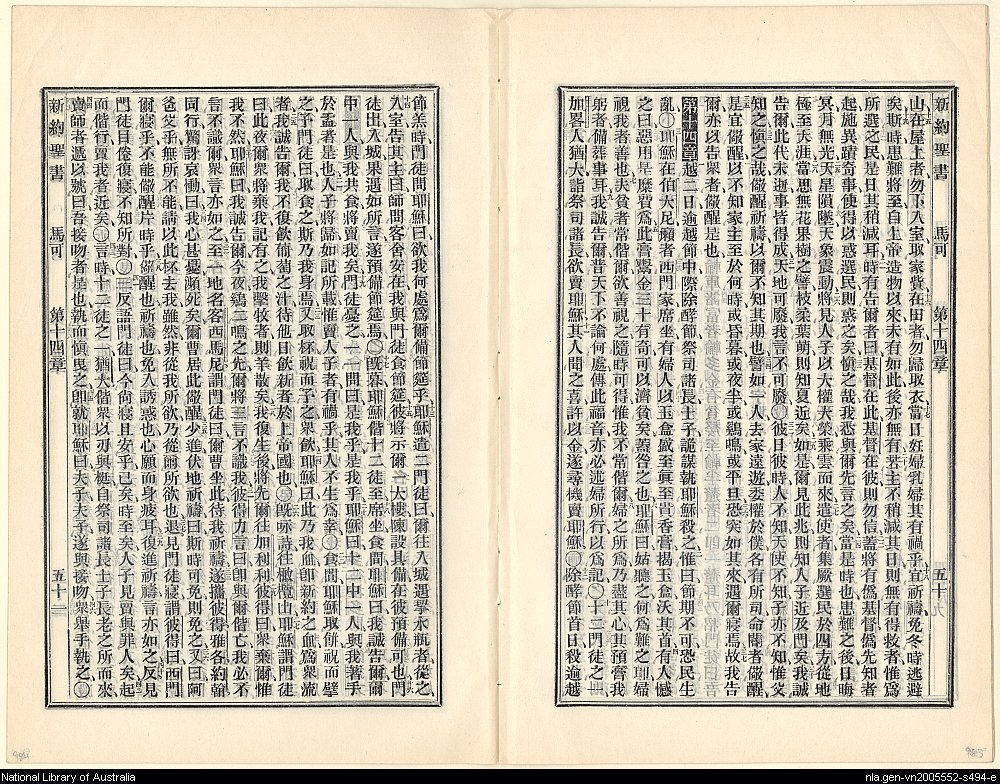 新約聖書 馬可 第十四章 五十九
山在屋上者勿下入室取家貲在田者勿歸取衣當日妊婦乳婦其有禍乎宜祈禱免冬時逃避
矣斯時患難將至自上帝造物以來未有如此後亦無有若主不稍減其日則無有得救者惟爲
所選之民是日其稍減耳時有告爾者曰基督在此基督在彼則勿信蓋將有僞基督僞先知者
起施異蹟奇事使得以惑選民則惑之矣愼之哉我悉與爾先言之矣當是時也患難之後日晦
冥月無光天星隕墜天象震動將見人子以大權大榮乘雲而來遣使者集厥選民於四方從地
極至天涯當思無花果樹之譬枝柔葉萌則知夏近矣如是爾見此兆則知人子近及門矣我誠
告爾此代未逝事皆得成天地可廢我言不可廢彼日彼時人不知天使不知子亦不知惟父
知之愼之哉儆醒祈禱以爾不知其期也譬如一人去家遠遊委權於僕各有所司命閽者儆醒
是宜儆醒以不知家主至於何時或昏暮或夜半或鷄鳴或平旦恐突如其來遇爾寢焉故我告
爾亦以告衆者儆醒是也
第十四章越二日逾越節中際除酵節祭司諸長士子詭謀執耶穌殺之惟曰節期不可恐民生
亂耶穌在伯大尼癩者西門家席坐有婦人以玉盒盛至眞至貴香膏揭玉盒沃其首有人憾
之曰惡用是糜費爲此膏鬻金三十有奇可以濟貧矣蓋咎之也耶穌曰姑聽之何爲難之耶婦
視我者善也夫貧者常偕爾欲善視之隨時可得惟我不常偕爾婦之所爲乃盡其心其預膏我
躬者備葬事耳我誠告爾普天下不論何處傳此福音亦必述婦所行以爲記十二門徒之一
加畧人猶大詣祭司諸長欲賣耶穌其人聞之喜許以金遂尋機賣耶穌除酵節首日殺逾越
節羔時門徒問耶穌曰欲我何處爲爾備節筵乎耶穌遣二門徒曰爾往入城遇挈水瓶者從之
入室告其主曰師問客舍安在我與門徒食節筵彼將示爾一大樓陳設具備在彼預備可也門
徒出入城果遇如所言遂預備節筵焉既暮耶穌偕十二徒至席坐食間耶穌曰我誠告爾爾
中一人與我共食將賣我矣門徒憂之一一問曰是我乎是我乎耶穌曰十二中一人與我著手
於盂者是也人子將歸如記所載惟賣人子者有禍乎其人不生爲幸食間耶穌取餅祝而擘
之予門徒曰取食之斯乃我身焉又取杯祝而予之衆飲耶穌曰此乃我血卽新約之血爲衆流
者我誠告爾我不復飲葡萄之汁待他日飲新者於上帝國也既咏詩往橄欖山耶穌謂門徒
曰此夜爾衆將棄我記有之我擊牧者則羊散矣我復生後將先爾往加利利彼得曰衆棄爾惟
我不然耶穌曰我誠告爾今夜鷄二鳴之先爾將三言不識我彼得力言曰卽與爾偕亡我必不
言不識爾衆言亦如之至一地名客西馬尼謂門徒曰爾曹坐此待我祈禱遂攜彼得雅各約翰
同行驚訝哀慟曰我心甚憂瀕死矣爾曹居此儆醒少進伏地祈禱曰斯時可免則免之又曰阿
爸父乎無所不能請以此杯去我雖然非從我所欲乃從爾所欲也退見門徒寢謂彼得曰西門
爾寢乎不能儆醒片時乎儆醒也祈禱也免入誘惑也心願而身疲耳復進祈禱言亦如之反見
門徒目倦復寢不知所對三反語門徒曰今尙寢且安乎已矣時至矣人子見賣與罪人矣起
而偕行賣我者近矣言時十二徒之一猶大偕衆以刃與梃自祭司諸長士子長老之所而來
賣師者遞以號曰吾接吻者是也執而愼曳之卽就耶穌曰夫子夫子遂與接吻衆舉手執之
新約聖書 馬可 第十四章 五十
984
985
National Library of Australia
nla.gen-vn2005552-s494-e